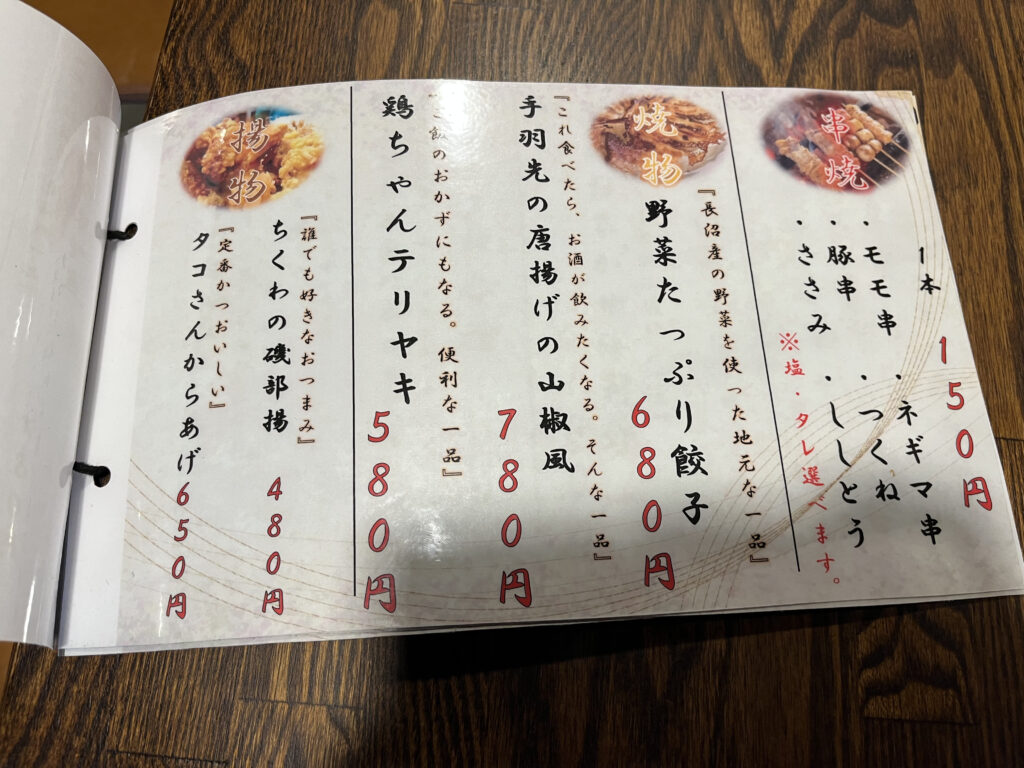 串焼
1本 150円
・モモ串
・ネギマ串
・豚串
・つくね
・ささみ
・ししとう
※塩・タレ選べます。
焼物
『長沼産の野菜を使った地元な一品』
野菜たっぷり餃子 680円
『これ食べたら、お酒が飲みたくなる。そんな一品』
手羽先の唐揚げの山椒風 780円
『ご飯のおかずにもなる。便利な一品』
鶏ちゃんテリヤキ 580円
揚物
『誰でも好きなおつまみ』
ちくわの磯部揚 480円
『定番かつおいしい』
タコさんからあげ 650円